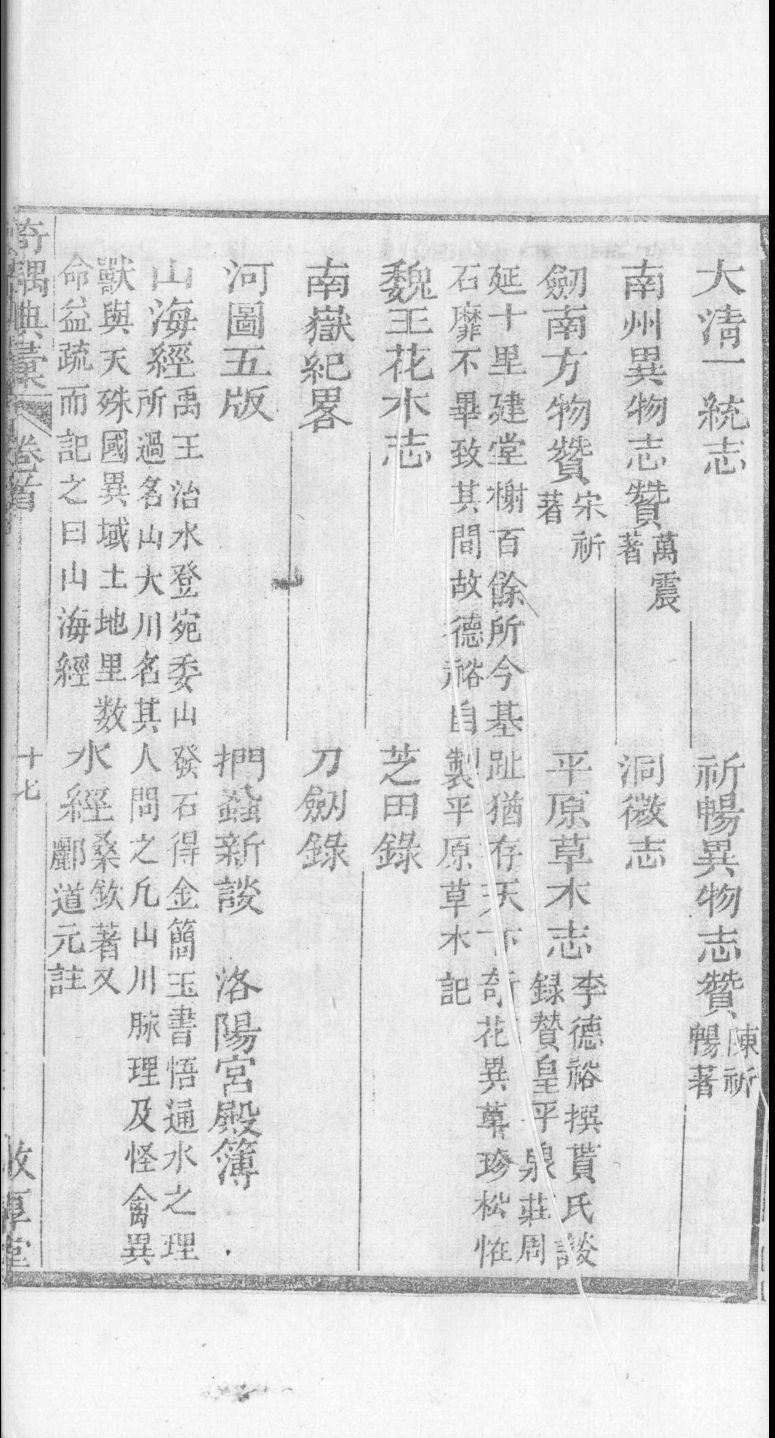 大清一統志　祈暢異物志贊陳祈暢著
南州異物志贊萬震著　洞微志
劒南方物贊宋祈著　平原草木志李德裕撰賈氏談録贊皇平泉莊周
延十里建堂榭百餘所今基趾猶存天下奇花異草珍松怪
石靡不畢致其間故德裕自製平原草木記
魏王花木志　芝田錄
南嶽紀畧　刀劒錄
河圖五版　捫蝨新談　洛陽宮殿簿
山海經禹王治水登宛委山發石得金簡玉書悟通水之理
所過名山大川名其人問之凢山川脉理及怪禽異
獸與天殊國異域土地里数
命益疏而記之曰山海經　水經桑欽著又酈道元註
奇偶典彙　卷首　十七　敦厚堂